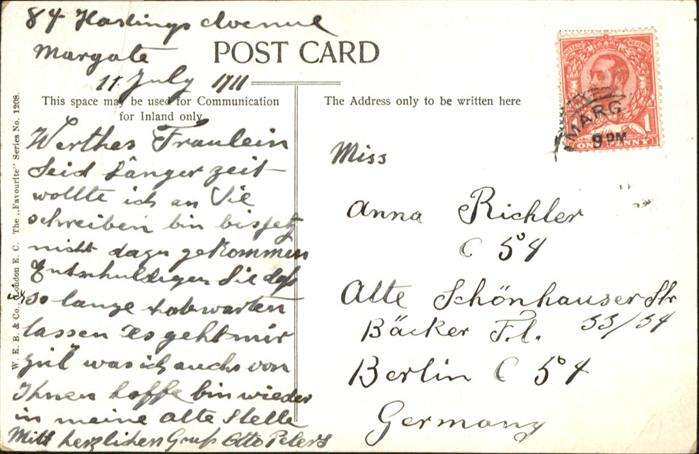 84 Hastings Avenue
Margate
11 July 1911
POST CARD
This space may be used for Communication
for Inland only
The Address only to be written here
W. E. B. & Co. London E. C. The „Favourite" Series No. 1208.
MARG
9 PM
ONE PENNY 1
Werthes Fraulein
Seid länger zeit
wollte ich an Sie
schreiben bin bisjetz
nicht dazu gekommen
Entschuldigen Sie daß
so lange habwarten
lassen es geht mir
gut was ich auch von
Ihnen hoffe bin wieder
in meine alte Stelle
Mitt herzlichen Gruß Otto Peters
Miss
Anna Richler
C 54
Alte Schönhauser Str
33/34
Bäcker
Berlin C 54
Germany